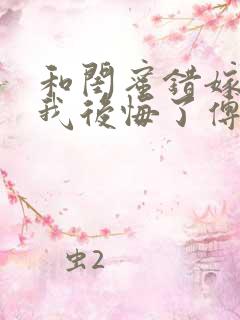 和閨蜜錯嫁
我後悔了傅
虫2